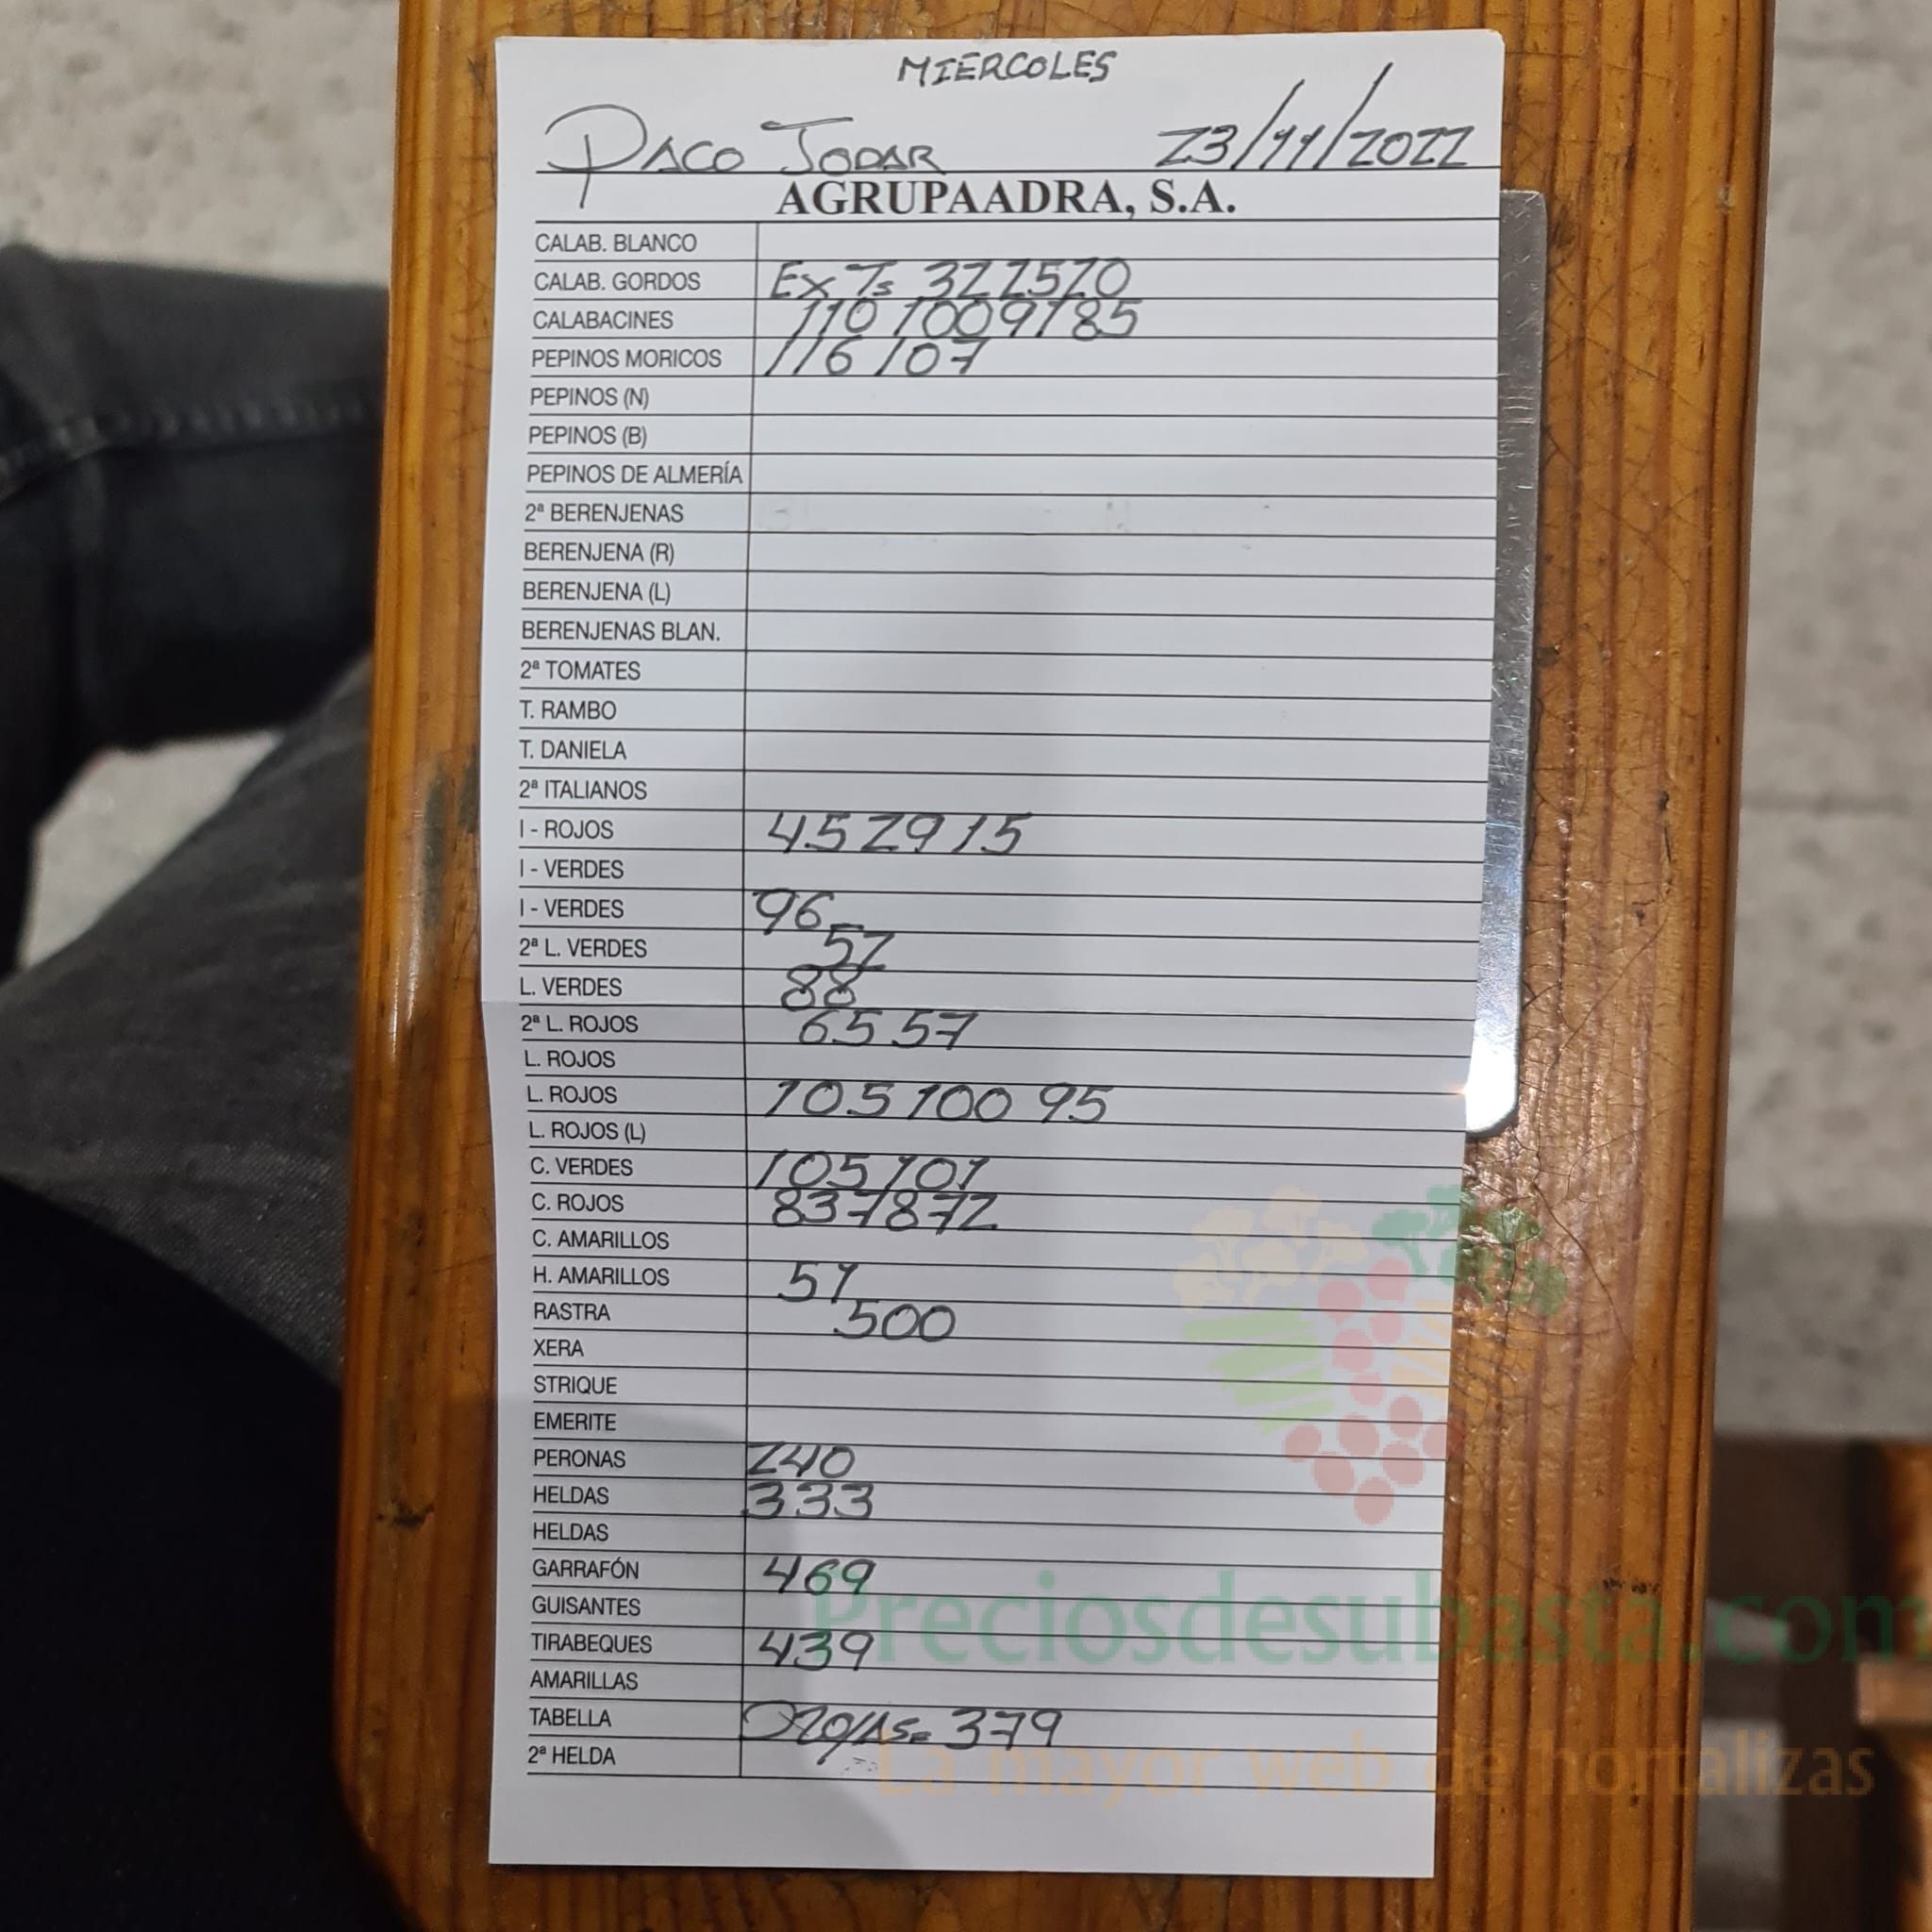 MIERCOLES
PACO JODAR 23/11/2022
AGRUPAADRA, S.A.
CALAB. BLANCO
CALAB. GORDOS Ex Ts 32 25 20
CALABACINES 110 100 91 85
PEPINOS MORICOS 116 107
PEPINOS (N)
PEPINOS (B)
PEPINOS DE ALMERÍA
2ª BERENJENAS
BERENJENA (R)
BERENJENA (L)
BERENJENAS BLAN.
2ª TOMATES
T. RAMBO
T. DANIELA
2ª ITALIANOS
I - ROJOS 45 29 15
I - VERDES
I - VERDES 96
2ª L. VERDES 52
L. VERDES 88
2ª L. ROJOS 65 57
L. ROJOS
L. ROJOS 105 100 95
L. ROJOS (L)
C. VERDES 105 101
C. ROJOS 83 78 72
C. AMARILLOS
H. AMARILLOS 51
RASTRA 500
XERA
STRIQUE
EMERITE
PERONAS 240
HELDAS 333
HELDAS
GARRAFÓN 469
GUISANTES
TIRABEQUES 439
AMARILLAS
TABELLA 379
2ª HELDA
Preciosdesubasta.com
La mayor web de hortalizas